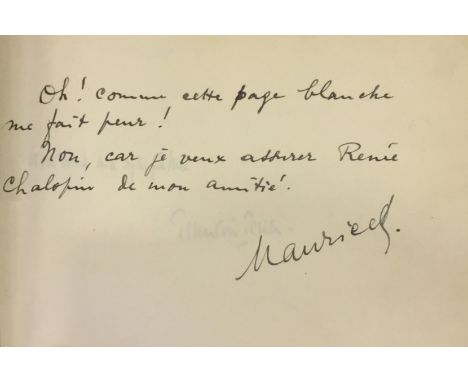 Oh! comme cette page blanche
me fait peur!
Non, car je veux assurer Renée
Chalopin de mon amitié.
Maurice